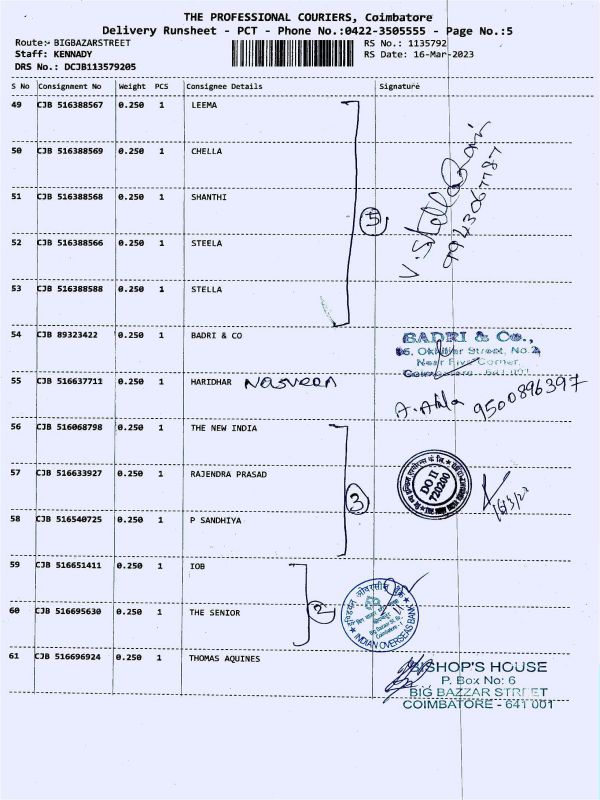 THE PROFESSIONAL COURIERS, Coimbatore
Delivery Runsheet - PCT - Phone No.:0422-3505555 - Page No.:5
Route:- BIGBAZARSTREET
RS No.: 1135792
Staff: KENNADY
RS Date: 16-Mar-2023
DRS No.: DCJB113579205
S No Consignment No Weight PCS Consignee Details Signature
49 CJB 516388567 0.250 1 LEEMA
50 CJB 516388569 0.250 1 CHELLA
51 CJB 516388568 0.250 1 SHANTHI
52 CJB 516388566 0.250 1 STEELA
53 CJB 516388588 0.250 1 STELLA
5
V. Stella Rani
9943067787
54 CJB 89323422 0.250 1 BADRI & CO
BADRI & Co.,
Street, No.2
Near Five Corner,
55 CJB 516637711 0.250 1 HARIDHAR Nasveen
9500896397
56 CJB 516068798 0.250 1 THE NEW INDIA
57 CJB 516633927 0.250 1 RAJENDRA PRASAD
58 CJB 516540725 0.250 1 P SANDHIYA
3
DO II
720200
59 CJB 516651411 0.250 1 IOB
60 CJB 516695630 0.250 1 THE SENIOR
2
इण्डियन ओवरसीज़ बैंक
INDIAN OVERSEAS BANK
61 CJB 516696924 0.250 1 THOMAS AQUINES
BISHOP'S HOUSE
P. Box No: 6
BIG BAZZAR STREET
COIMBATORE - 641 001